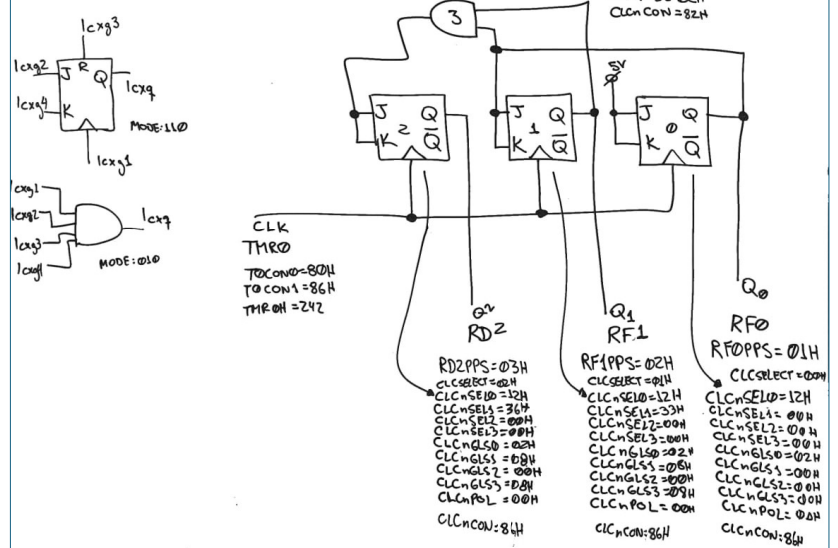 lcxg3
lcxg2
J R Q
lcxq
lcxg4
K
MODE:110
lcxg1
lcxg1
lcxg2
lcxg3
lcxg4
lcxq
MODE:010
3
CLCnCON=82H
5V
J 2 Q
K Q
J 1 Q
K Q
J 0 Q
K Q
CLK
TMR0
T0CON0=80H
T0CON1=86H
TMR0H=242
Q2
RD2
RD2PPS=03H
CLCSELECT=02H
CLCnSEL0=12H
CLCnSEL1=36H
CLCnSEL2=00H
CLCnSEL3=00H
CLCnGLS0=02H
CLCnGLS1=08H
CLCnGLS2=00H
CLCnGLS3=08H
CLCnPOL=00H
CLCnCON:86H
Q1
RF1
RF1PPS=02H
CLCSELECT=01H
CLCnSEL0=12H
CLCnSEL1=33H
CLCnSEL2=00H
CLCnSEL3=00H
CLCnGLS0=02H
CLCnGLS2=00H
CLCnPOL=00H
CLCnCON:86H
Q0
RF0
RF0PPS=01H
CLCSELECT=00H
CLCnSEL0=12H
CLCnSEL1=00H
CLCnSEL2=00H
CLCnSEL3=00H
CLCnGLS0=02H
CLCnGLS1=00H
CLCnGLS2=00H
CLCnGLS3=00H
CLCnCON:86H